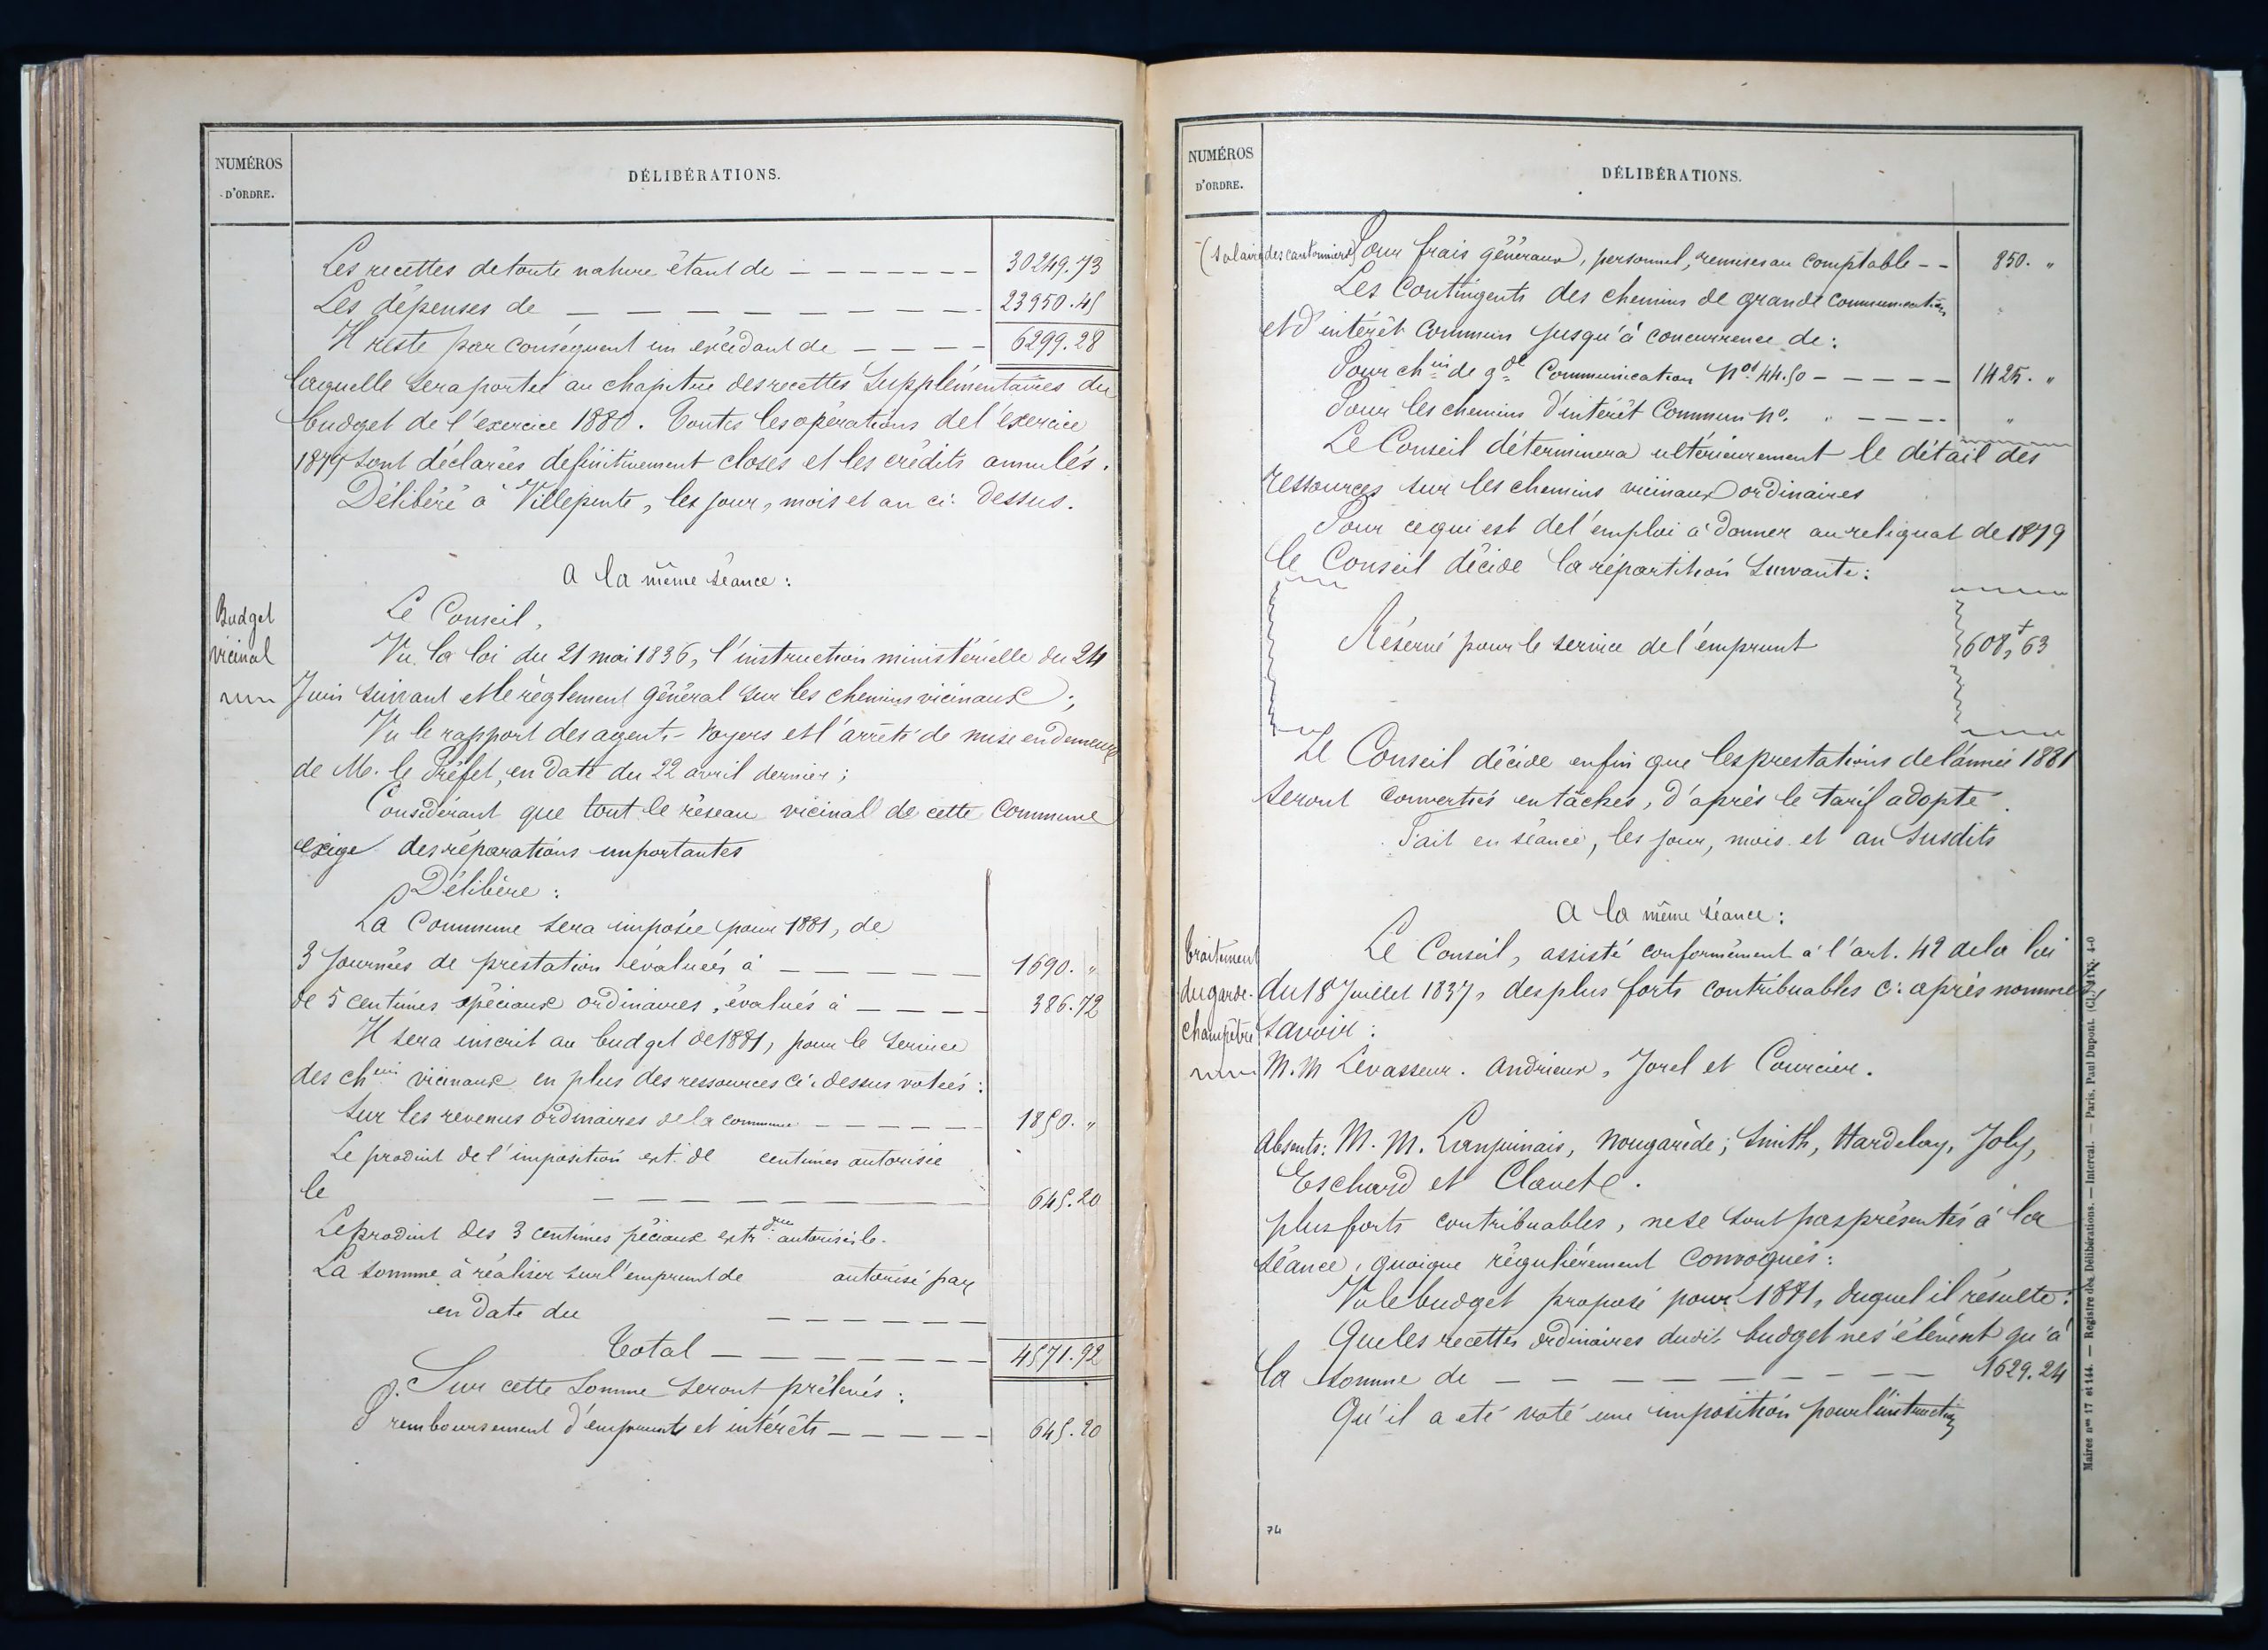 NUMÉROS
D'ORDRE.
DÉLIBÉRATIONS.
Les recettes de toute nature étant de — — — — — — — 30249.73
Les dépenses de — — — — — — — — — 23950.45
Il reste par conséquent un excédant de — — — — 6299.28
laquelle sera portée au chapitre des recettes supplémentaires du
budget de l'exercice 1880. Toutes les opérations de l'exercice
1879 sont déclarées définitivement closes et les crédits annulés.
Délibéré à Villepinte, les jour, mois et an ci-dessus.
A la même séance :
Budget
vicinal
Le Conseil,
Vu la loi du 21 mai 1836, l'instruction ministérielle du 24
Juin suivant et le règlement général sur les chemins vicinaux ;
Vu le rapport des agents-voyers et l'arrêté de mise en demeure
de M. le Préfet, en date du 22 avril dernier ;
Considérant que tout le réseau vicinal de cette commune
exige des réparations importantes
Délibère :
La Commune sera imposée pour 1881, de
3 journées de prestation évaluées à — — — — — 1690. "
de 5 centimes spéciaux ordinaires, évalués à — — — — 386.72
Il sera inscrit au budget de 1881, pour le service
des chins vicinaux en plus des ressources ci-dessus votées :
Sur les revenus ordinaires de la commune — — — — — — 1850. "
Le produit de l'imposition ext. de centimes autorisée
le — — — — — — — — — 645.20
Le produit des 3 centimes spéciaux extr.dre autorisés le.
La somme à réaliser sur l'emprunt de autorisé par
en date du — — — — — —
Total — — — — — — — 4571.92
Sur cette somme seront prélevés :
P. remboursement d'emprunts et intérêts — — — — — 645.20
NUMÉROS
D'ORDRE.
DÉLIBÉRATIONS.
(Salaire des cantonniers) Pour frais généraux, personnel, remises au comptable — — 850. "
Les Contingents des chemins de grande communication
et d'intérêt commun jusqu'à concurrence de :
Pour chin de gde Communication Nos 44.50 — — — — — 1425. "
Pour les chemins d'intérêt Commun No. " — — — — "
Le Conseil déterminera ultérieurement le détail des
ressources sur les chemins vicinaux ordinaires
Pour ce qui est de l'emploi à donner au reliquat de 1879
le Conseil décide la répartition suivante :
Réservé pour le service de l'emprunt 608,63
Le Conseil décide enfin que les prestations de l'année 1881
seront converties en tâches, d'après le tarif adopté.
Fait en séance, les jour, mois et an susdits
A la même séance :
Traitement
du garde-
champêtre
Le Conseil, assisté conformément à l'art. 42 de la loi
du 18 Juillet 1837, des plus forts contribuables ci-après nommés,
savoir :
M.M Levasseur. Andrieux, Jorel et Courcier.
Absents : M. M. Lanjuinais, Nougarède, Smith, Hardelay, Joly,
Eschard et Clauete.
plus forts contribuables, ne se sont pas présentés à la
séance, quoique régulièrement convoqués :
Vu le budget proposé pour 1881, duquel il résulte :
Que les recettes ordinaires dudit budget ne s'élèvent qu'à
la somme de — — — — — — — — — 1629.24
Qu'il a été voté une imposition pour l'instruction
74
Maires nos 17 et 144. — Registre des Délibérations. — Intercal. — Paris. Paul Dupont. 4-0